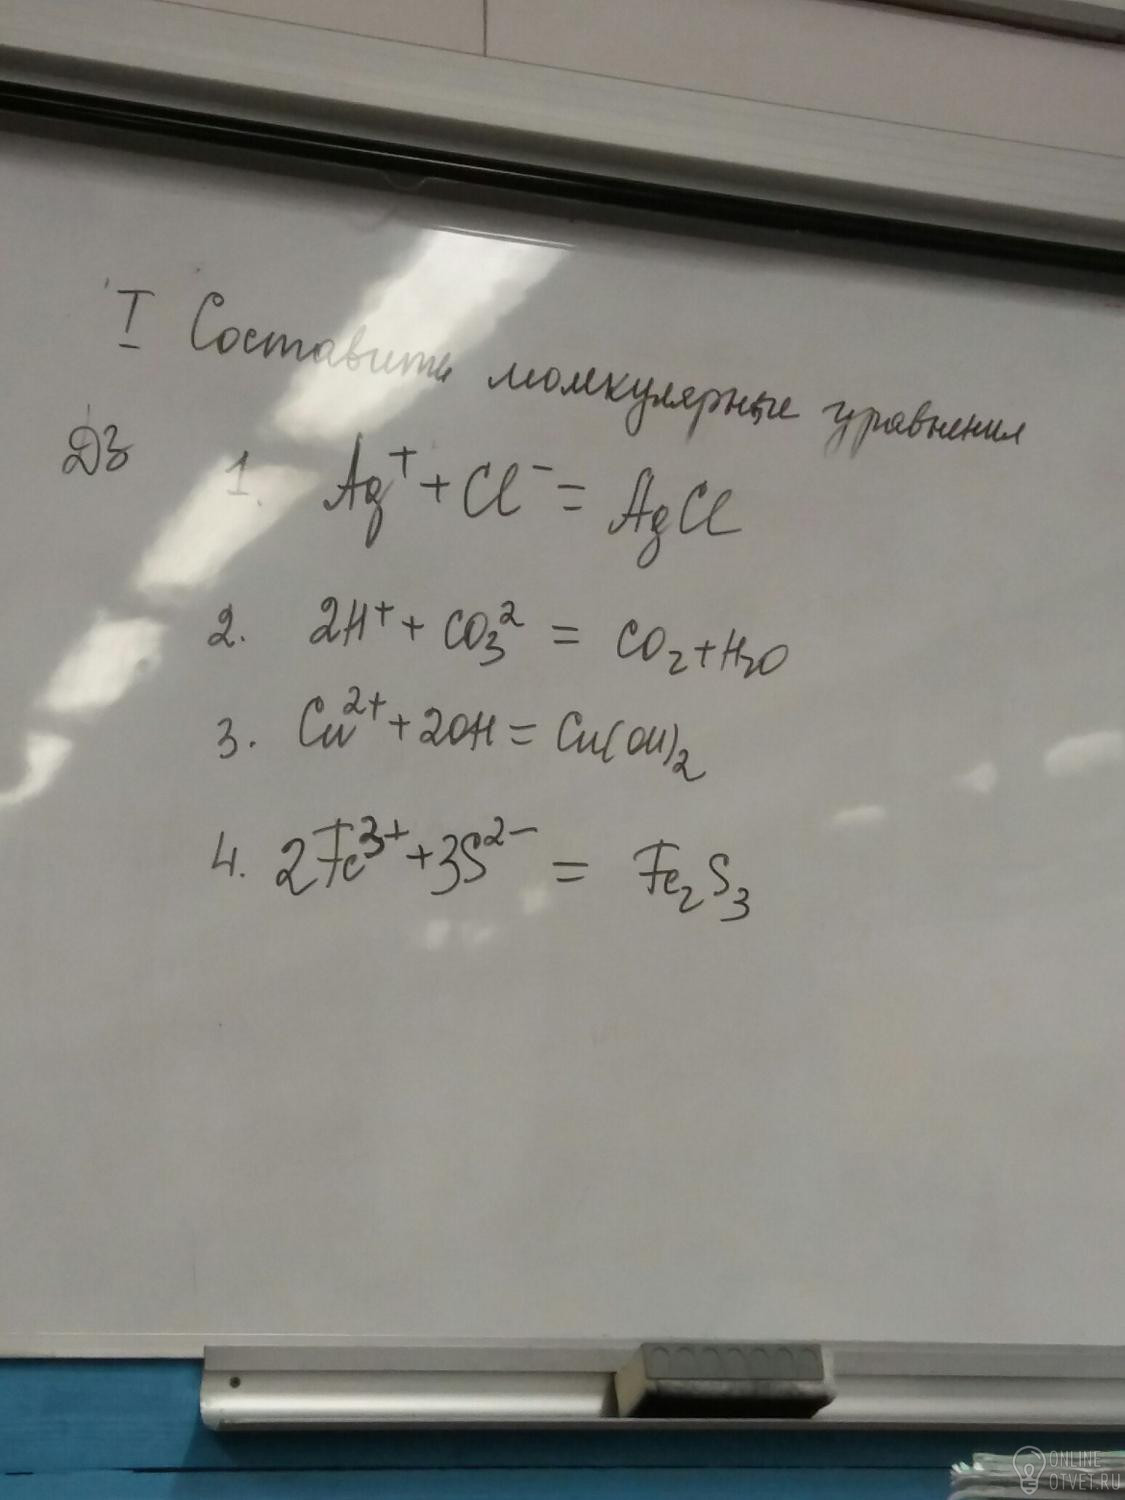 I Составить молекулярные уравнения
ДЗ
1. Ag⁺ + Cl⁻ = AgCl
2. 2H⁺ + CO₃² = CO₂ + H₂O
3. Cu²⁺ + 2OH = Cu(OH)₂
4. 2Fe³⁺ + 3S²⁻ = Fe₂S₃
ONLINE
OTVET.RU